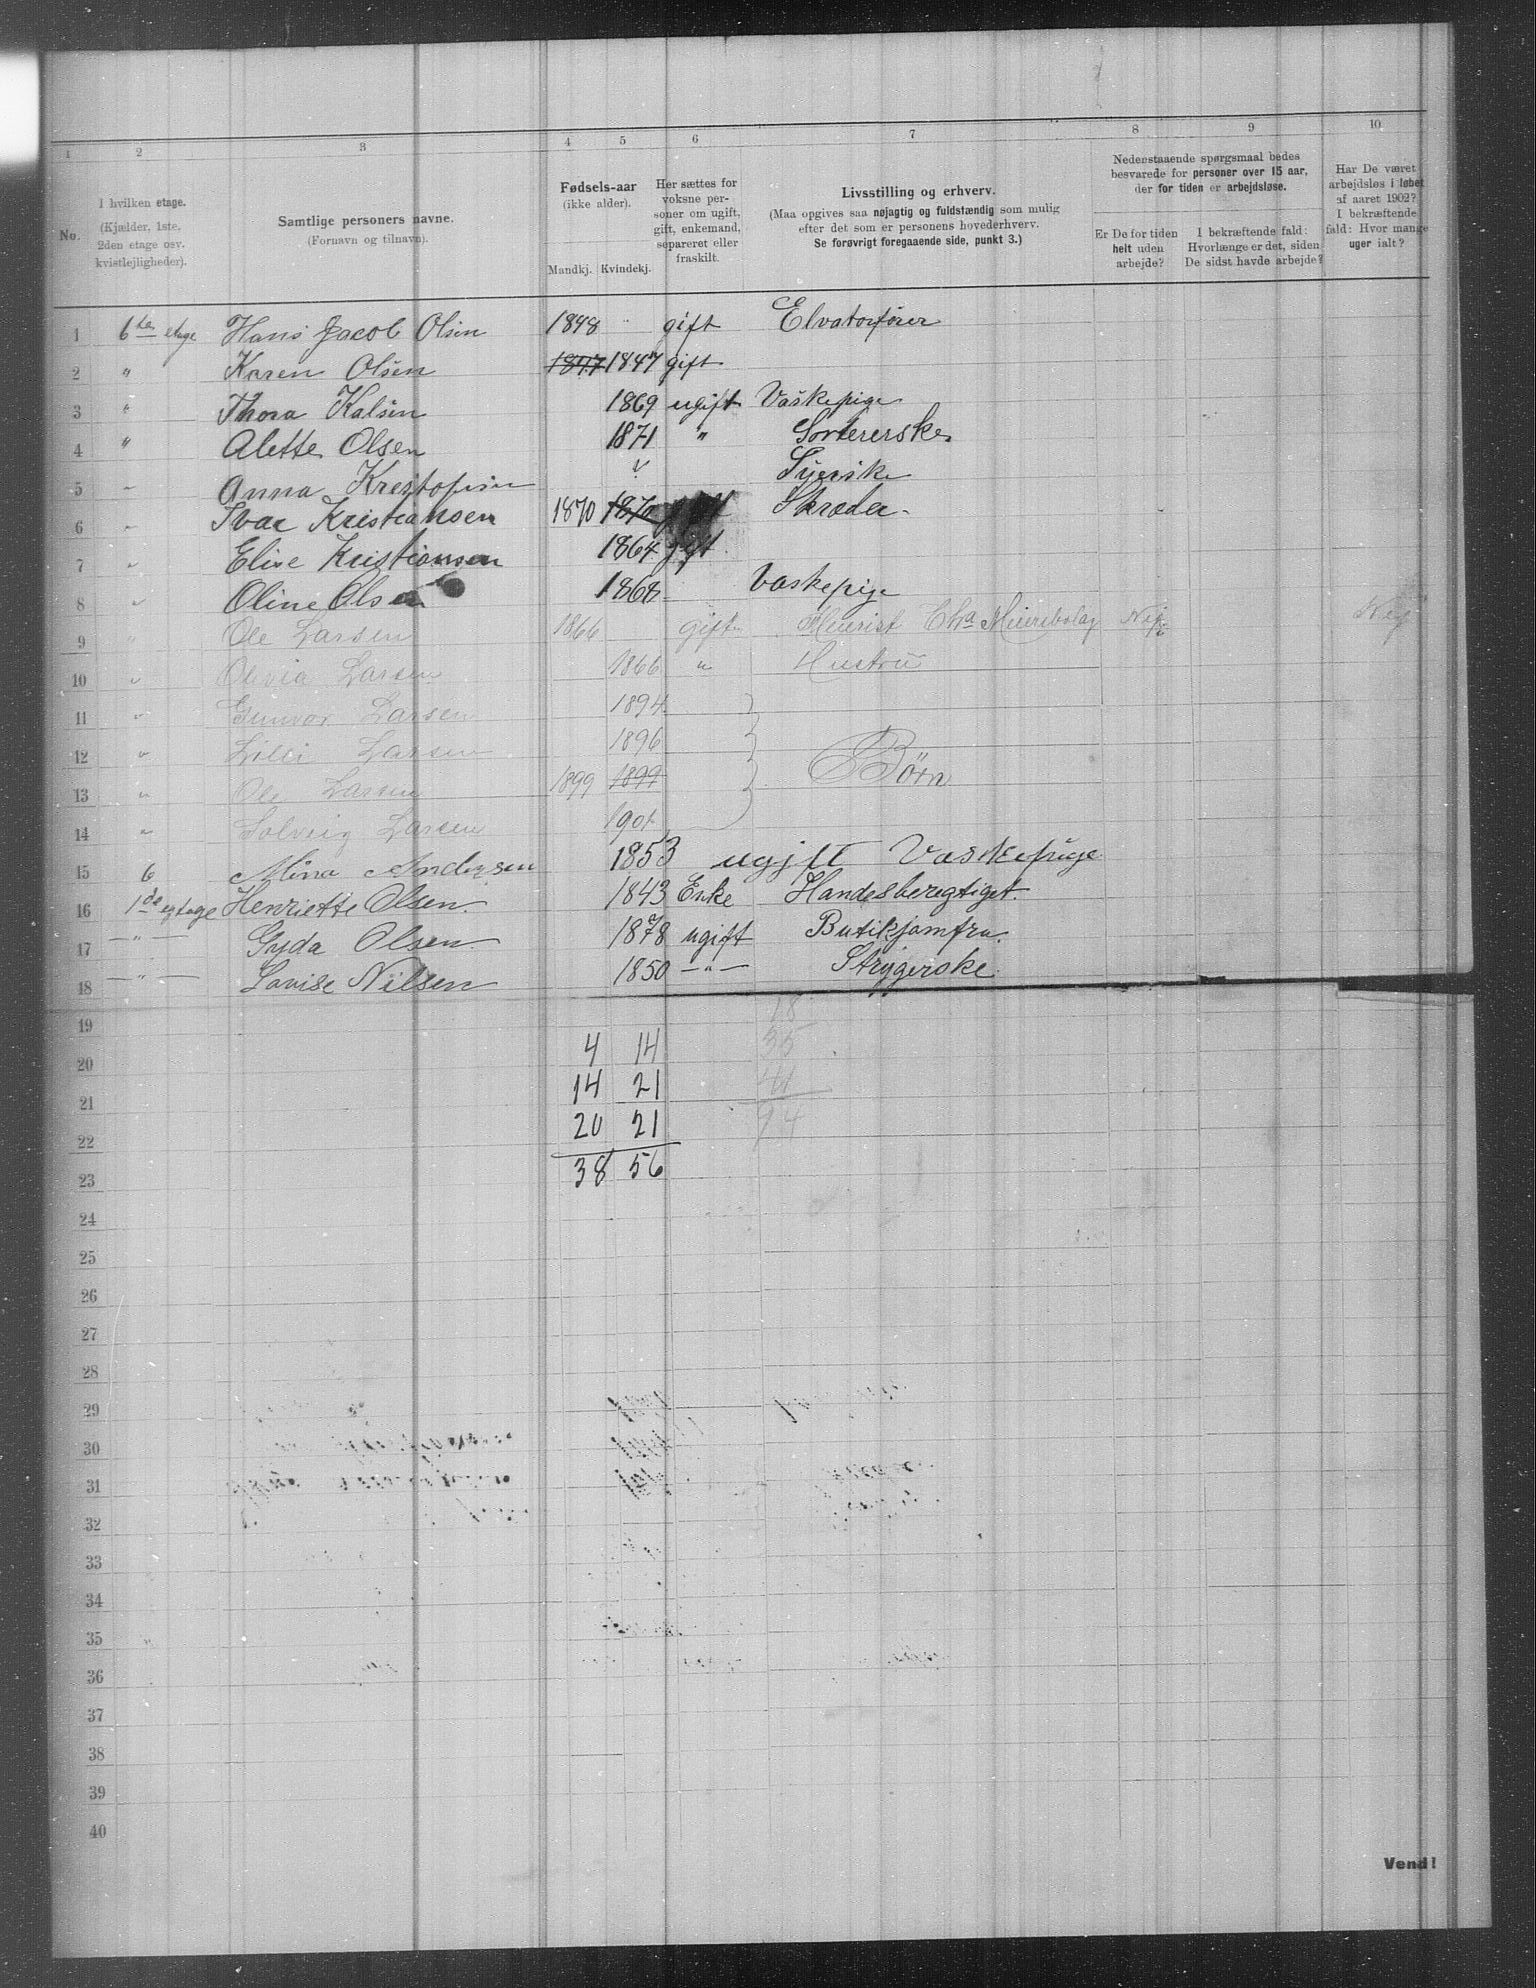 1 2 3 4 5 6 7 8 9 10
No.
I hvilken etage.
(Kjælder, 1ste, 2den etage osv. kvistlejligheder).
Samtlige personers navne.
(Fornavn og tilnavn).
Fødsels-aar
(ikke alder).
Mandkj. Kvindekj.
Her sættes for voksne personer om ugift, gift, enkemand, separeret eller fraskilt.
Livsstilling og erhverv.
(Maa opgives saa nøjagtig og fuldstændig som mulig efter det som er personens hovederhverv.
Se forøvrigt foregaaende side, punkt 3.)
Nedenstaaende spørgsmaal bedes besvarede for personer over 15 aar, der for tiden er arbejdsløse.
Er De for tiden helt uden arbejde?
I bekræftende fald: Hvorlænge er det, siden De sidst havde arbejde?
Har De været arbejdsløs i løbet af aaret 1902? I bekræftende fald: Hvor mange uger ialt?
1 6te etage Hans Jacob Olsen 1848 gift Elvatorfører
2 " Karen Olsen 1847 1847 gift
3 " Thora Kalsen 1869 ugift Vaskepige
4 " Alette Olsen 1871 " Sortererske
5 " Anna Krestofsen " Syerske
6 " Ivar Kristiansen 1870 1870 Skræder
7 " Elise Kristiansen 1864 gift
8 " Oline Olsen 1868 Vaskepige
9 " Ole Larsen 1866 gift Meierist Chra Meieribolag Nej Nej
10 " Olivia Larsen 1866 " Hustru
11 " Gunvor Larsen 1894
12 " Lilli Larsen 1896 Børn
13 " Ole Larsen 1899 1899
14 " Solveig Larsen 1901
15 6 Mina Andersen 1853 ugift Vaskepige
16 1de egtage Henriette Olsen 1843 Enke Handesberegtiget.
17 " Gyda Olsen 1878 ugift Butikjomfru.
18 " Lovise Nilsen 1850 " Strygerske
19 18
20 4 14 35
21 14 21 41
22 20 21 94
23 38 56
24
25
26
27
28
29
30
31
32
33
34
35
36
37
38
39
40
Vend!